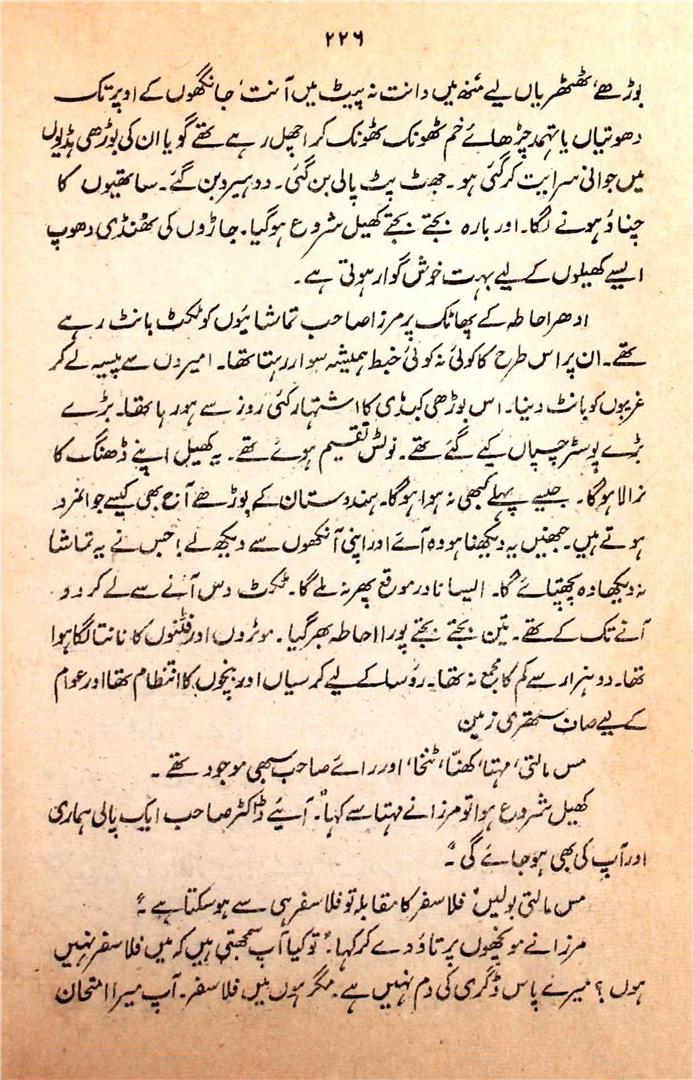 ۲۲۶
بوڑھے، ٹھٹھریاں لیے منھ میں دانت نہ پیٹ میں آنت، جانگھوں کے اوپر تک
دھوتیاں یا تہمد چڑھائے خم ٹھونک ٹھونک کر اچھل رہے تھے گویا ان کی بوڑھی ہڈیوں
میں جوانی سرایت کر گئی ہو۔ جھٹ پٹ پالی بن گئی۔ دو ہیرو بن گئے۔ ساتھیوں کا
چناؤ ہونے لگا۔ اور بارہ بجتے بجتے کھیل شروع ہو گیا۔ جاڑوں کی ٹھنڈی دھوپ
ایسے کھیلوں کے لیے بہت خوش گوار ہوتی ہے۔
ادھر احاطہ کے پھاٹک پر مرزا صاحب تماشائیوں کو ٹکٹ بانٹ رہے
تھے۔ ان پر اس طرح کا کوئی نہ کوئی خبط ہمیشہ سوار رہتا تھا۔ امیروں سے پیسہ لے کر
غریبوں کو بانٹ دینا۔ اس بوڑھی کبڈی کا اشتہار کئی روز سے ہو رہا تھا۔ بڑے
بڑے پوسٹر چسپاں کیے گئے تھے۔ نوٹس تقسیم ہوئے تھے۔ یہ کھیل اپنے ڈھنگ کا
نرالا ہوگا۔ جیسے پہلے کبھی نہ ہوا ہوگا۔ ہندوستان کے بوڑھے آج بھی کیسے جوانمرد
ہوتے ہیں۔ جنھیں یہ دیکھنا ہو وہ آئے اور اپنی آنکھوں سے دیکھ لے! جس نے یہ تماشا
نہ دیکھا وہ پچھتائے گا۔ ایسا نادر موقع پھر نہ ملے گا۔ ٹکٹ دس آنے سے لے کر دو
آنے تک کے تھے۔ تین بجتے بجتے پورا احاطہ بھر گیا۔ موٹروں اور فٹنوں کا تانتا لگا ہوا
تھا۔ دو ہزار سے کم کا مجمع نہ تھا۔ رؤسا کے لیے کرسیاں اور بنچوں کا انتظام تھا اور عوام
کے لیے صاف ستھری زمین
مس مالتی، مہتا، کھنّا، ٹنخا، اور رائے صاحب سبھی موجود تھے۔
کھیل شروع ہوا تو مرزا نے مہتا سے کہا "آیئے ڈاکٹر صاحب ایک پالی ہماری
اور آپ کی بھی ہو جائے گی۔"
مس مالتی بولیں "فلاسفر کا مقابلہ تو فلاسفر ہی سے ہو سکتا ہے۔"
مرزا نے مونچھوں پر تاؤ دے کر کہا۔ "تو کیا آپ سمجھتی ہیں کہ میں فلاسفر نہیں
ہوں؟ میرے پاس ڈگری کی دم نہیں ہے۔ مگر ہوں میں فلاسفر۔ آپ میرا امتحان